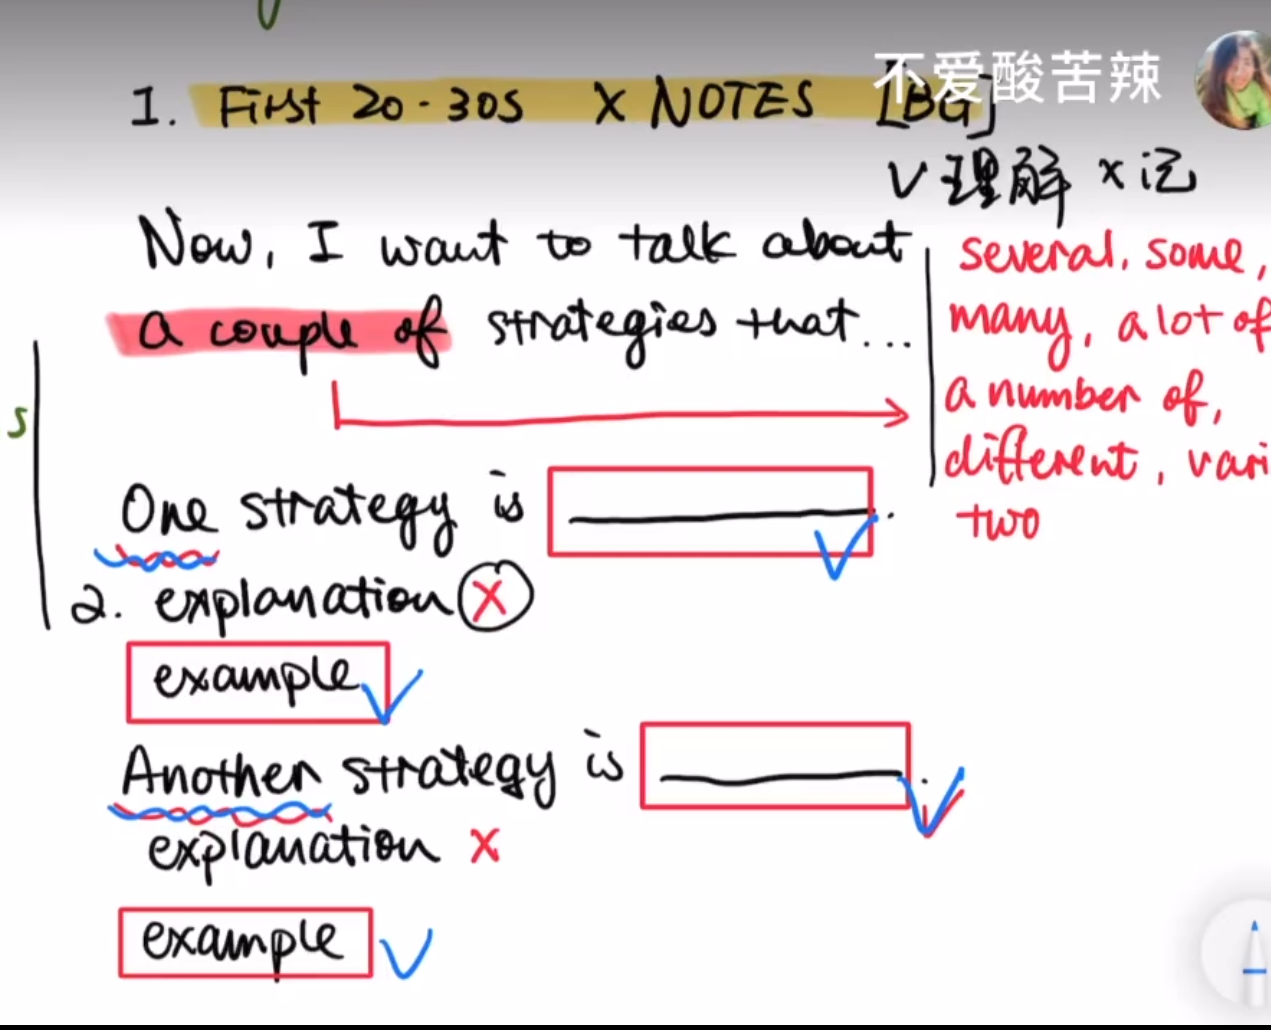 不爱酸苦辣
1. First 20-30s X NOTES [BG]
V理解 x记
Now, I want to talk about
a couple of strategies that...
several, some,
many, a lot of
a number of,
different, vari
two
s
One strategy is ________.
2. explanation X
example
Another strategy is ________.
explanation X
example